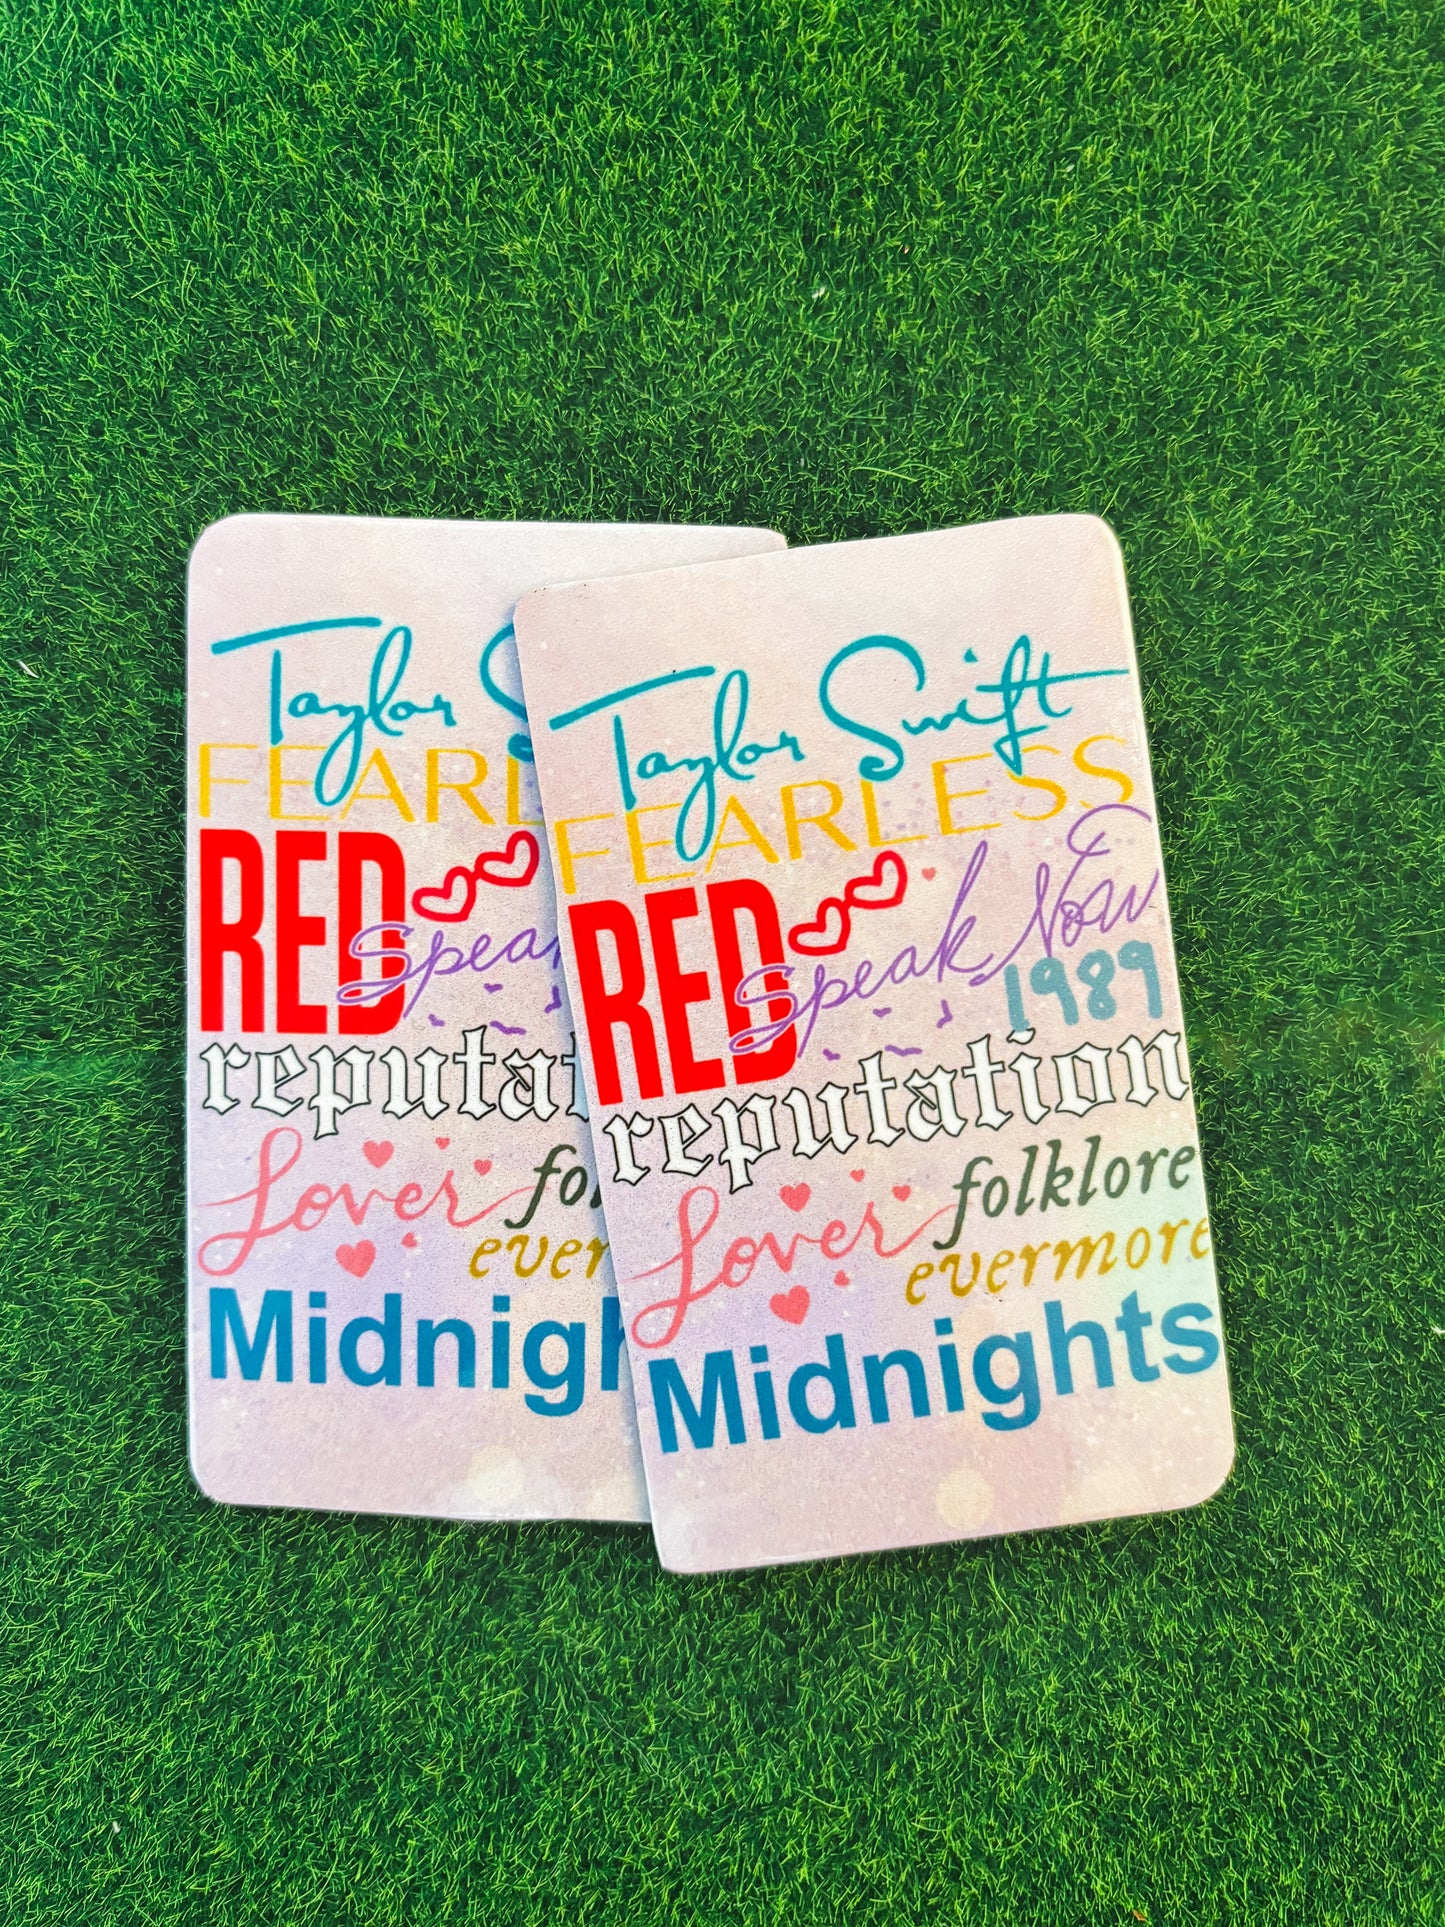 Taylor S
FEARL
RED
Spea
reputat
Lover fo
ever
Midnigh
Taylor Swift
FEARLESS
RED Speak Now
1989
reputation
Lover folklore
evermore
Midnights